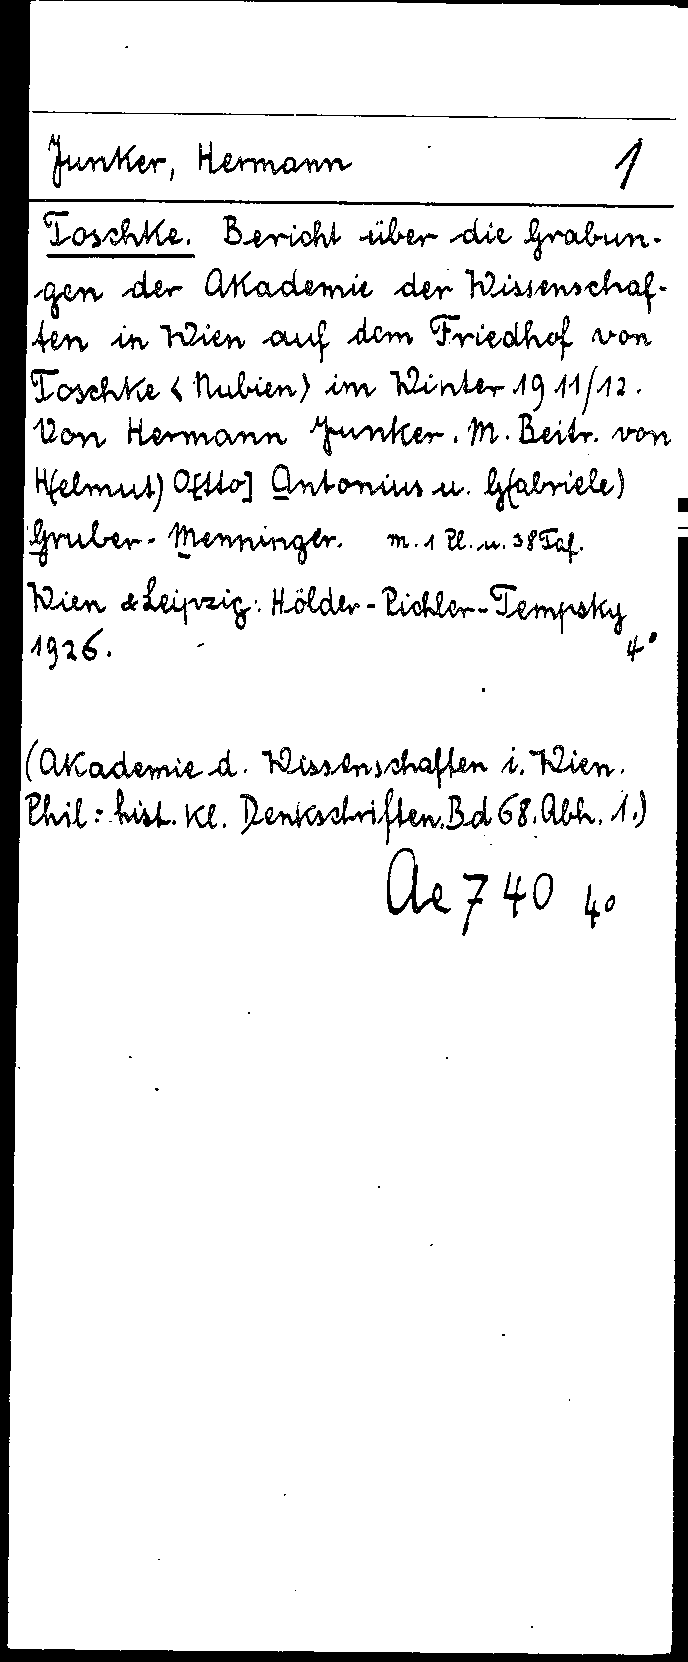 Junker, Hermann 1
Toschke. Bericht über die Grabun-
gen der Akademie der Wissenschaf-
ten in Wien auf dem Friedhof von
Toschke <Nubien> im Winter 1911/12.
Von Hermann Junker. M. Beitr. von
H[elmut] O[tto] Antonius u. G[abriele]
Gruber-Menninger. m. 1 Pl. u. 38 Taf.
Wien & Leipzig: Hölder-Pichler-Tempsky
1926. 4°
(Akademie d. Wissenschaften i. Wien.
Phil: hist. Kl. Denkschriften. Bd 68. Abh. 1.)
Ae 740 4°